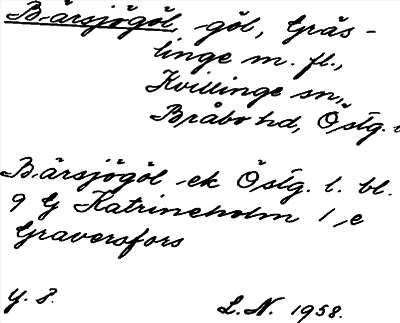 Bärsjögöl, göl, Gräs-
linge m. fl.,
Kvillinge sn,
Bråbo hd, Östg. l
Bärsjögöl ek Östg. l. bl.
9 G Katrineholm 1, e
Graversfors
y. 8.
L.N. 1958.